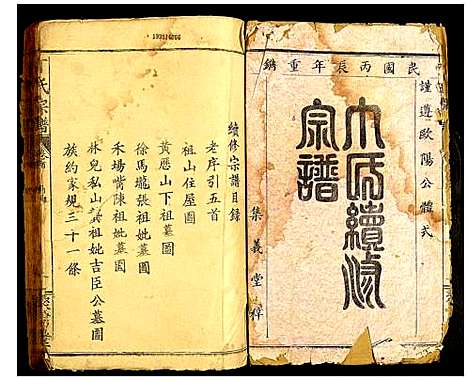 民國丙辰年重鐫
謹遵歐陽公體式
氏續修
宗譜
集義堂梓
續修宗譜目錄
老序引五首
祖山住屋圖
黃歷山下祖墓圖
徐馬壠張祖妣墓圖
禾場嘴陳祖妣墓圖
林兒私山黃祖妣吉臣公墓圖
族約家規三十一條
氏宗譜